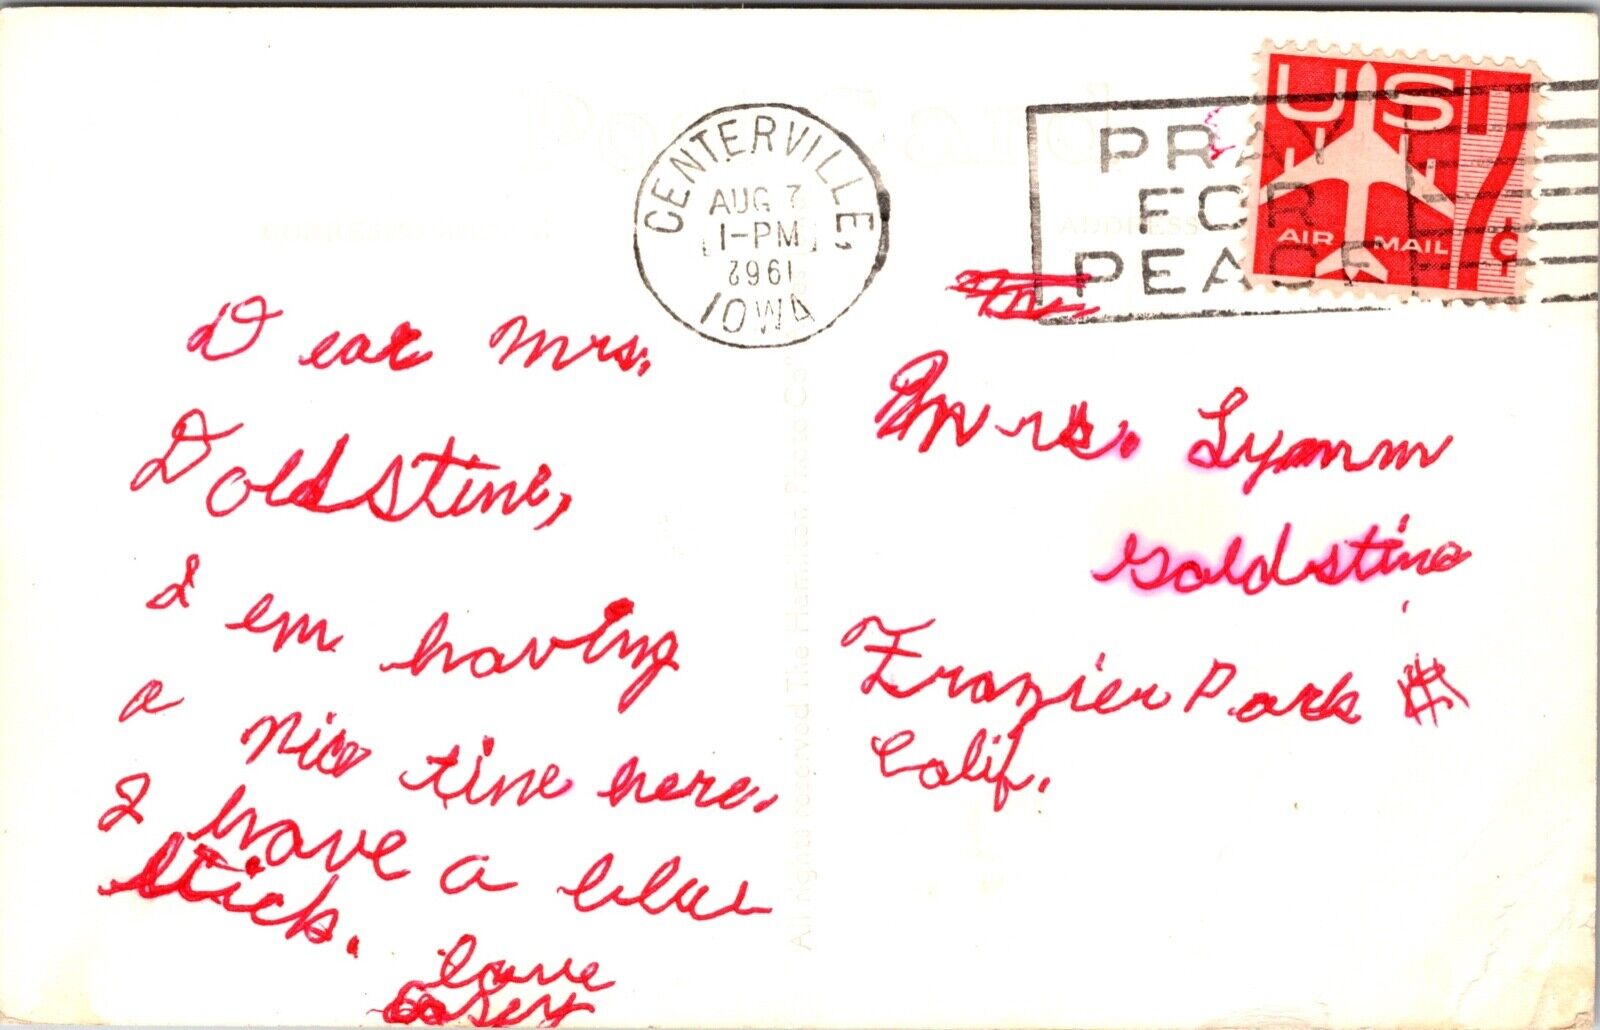 Post Card
CENTERVILLE,
AUG 7
1-PM
1962
IOWA
PRAY
FOR
PEACE
US
7¢
AIR MAIL
ADDRESS
Dear Mrs.
Doldstine,
I em having
a nice tine here.
I have a blue
stick.
love
Mrs. Lynnm
Goldstine
Frazier Park
Calif.
All rights reserved The Hamilton Photo Co